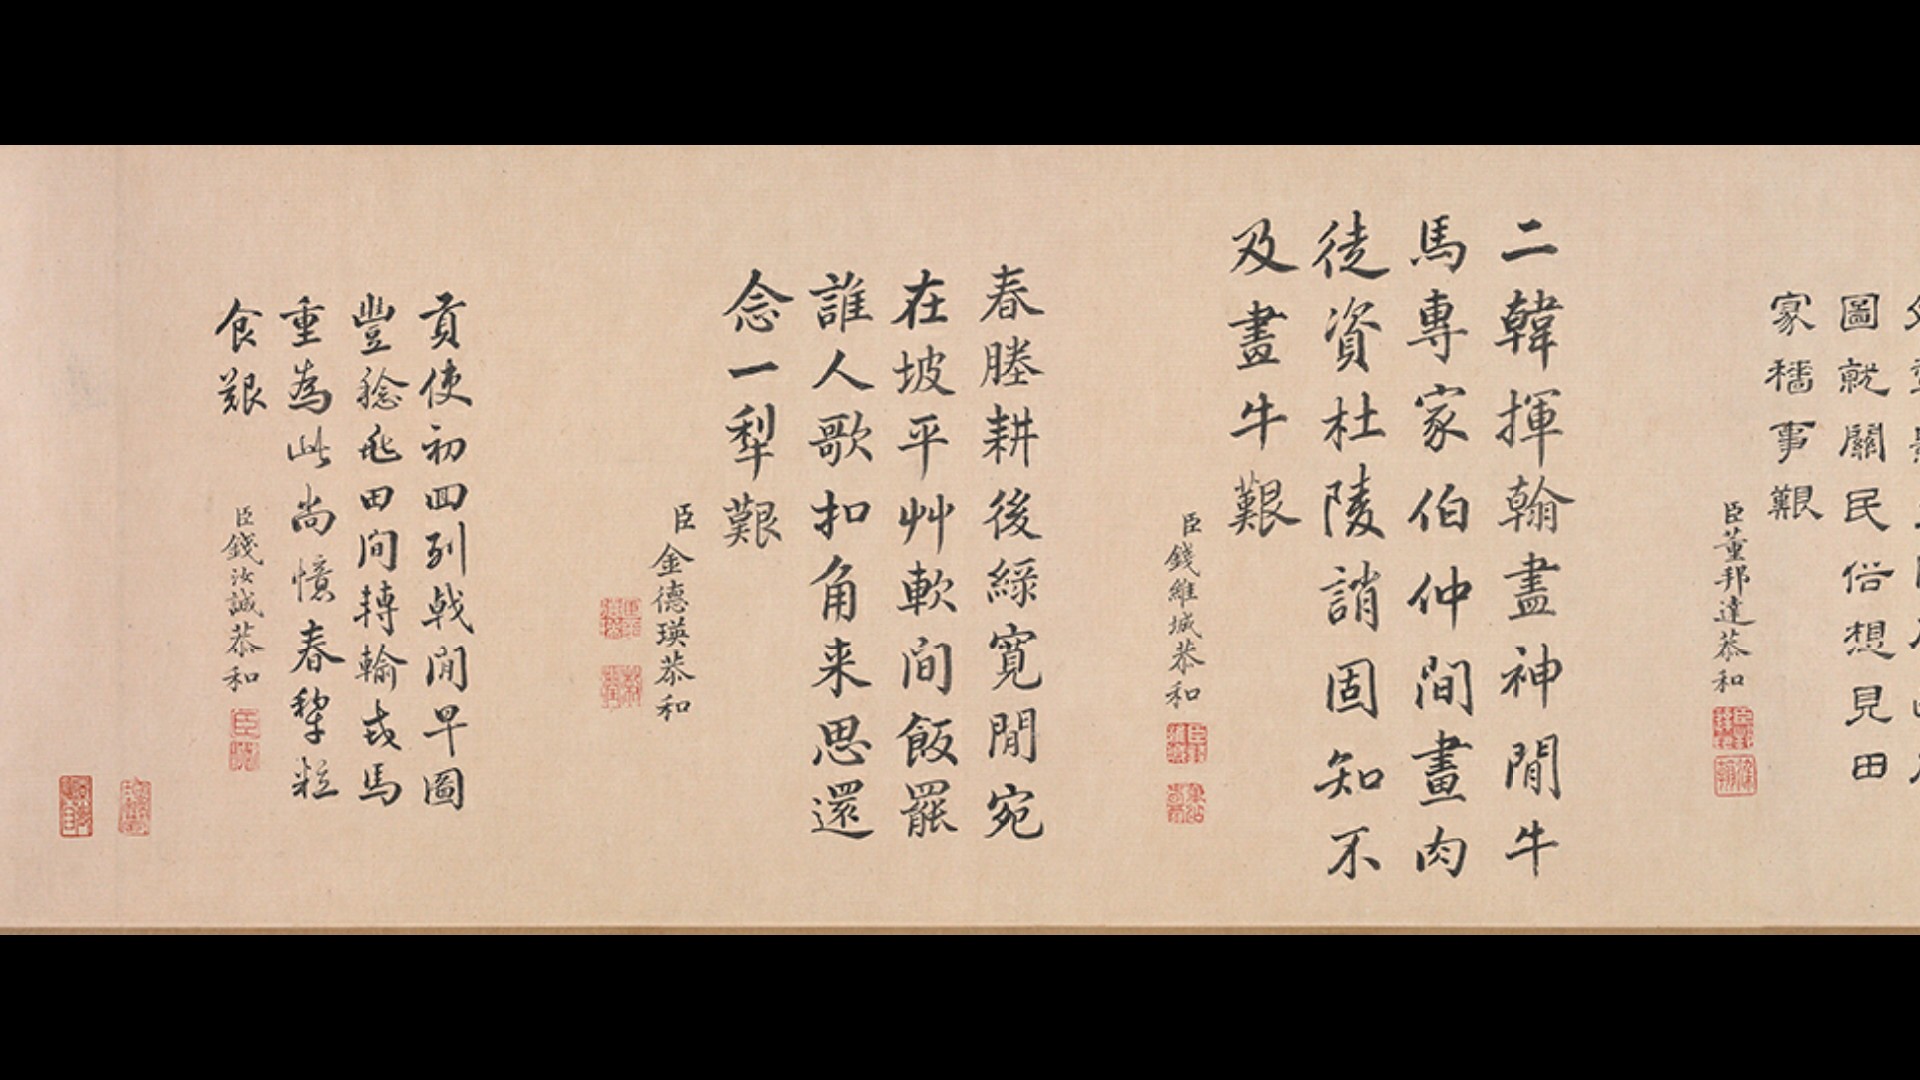 圖就關民俗想見田
家穡事艱
臣董邦達恭和
二韓揮翰盡神閒牛
馬專家伯仲間畫肉
徒資杜陵誚固知不
及畫牛艱
臣錢維城恭和
春塍耕後綠寬閒宛
在坡平艸軟間飯罷
誰人歌扣角来思還
念一犁艱
臣金德瑛恭和
貢使初回列戟閒早圖
豐稔飛田間轉輸戎馬
重為此尚憶春犂粒
食艱
臣錢汝誠恭和